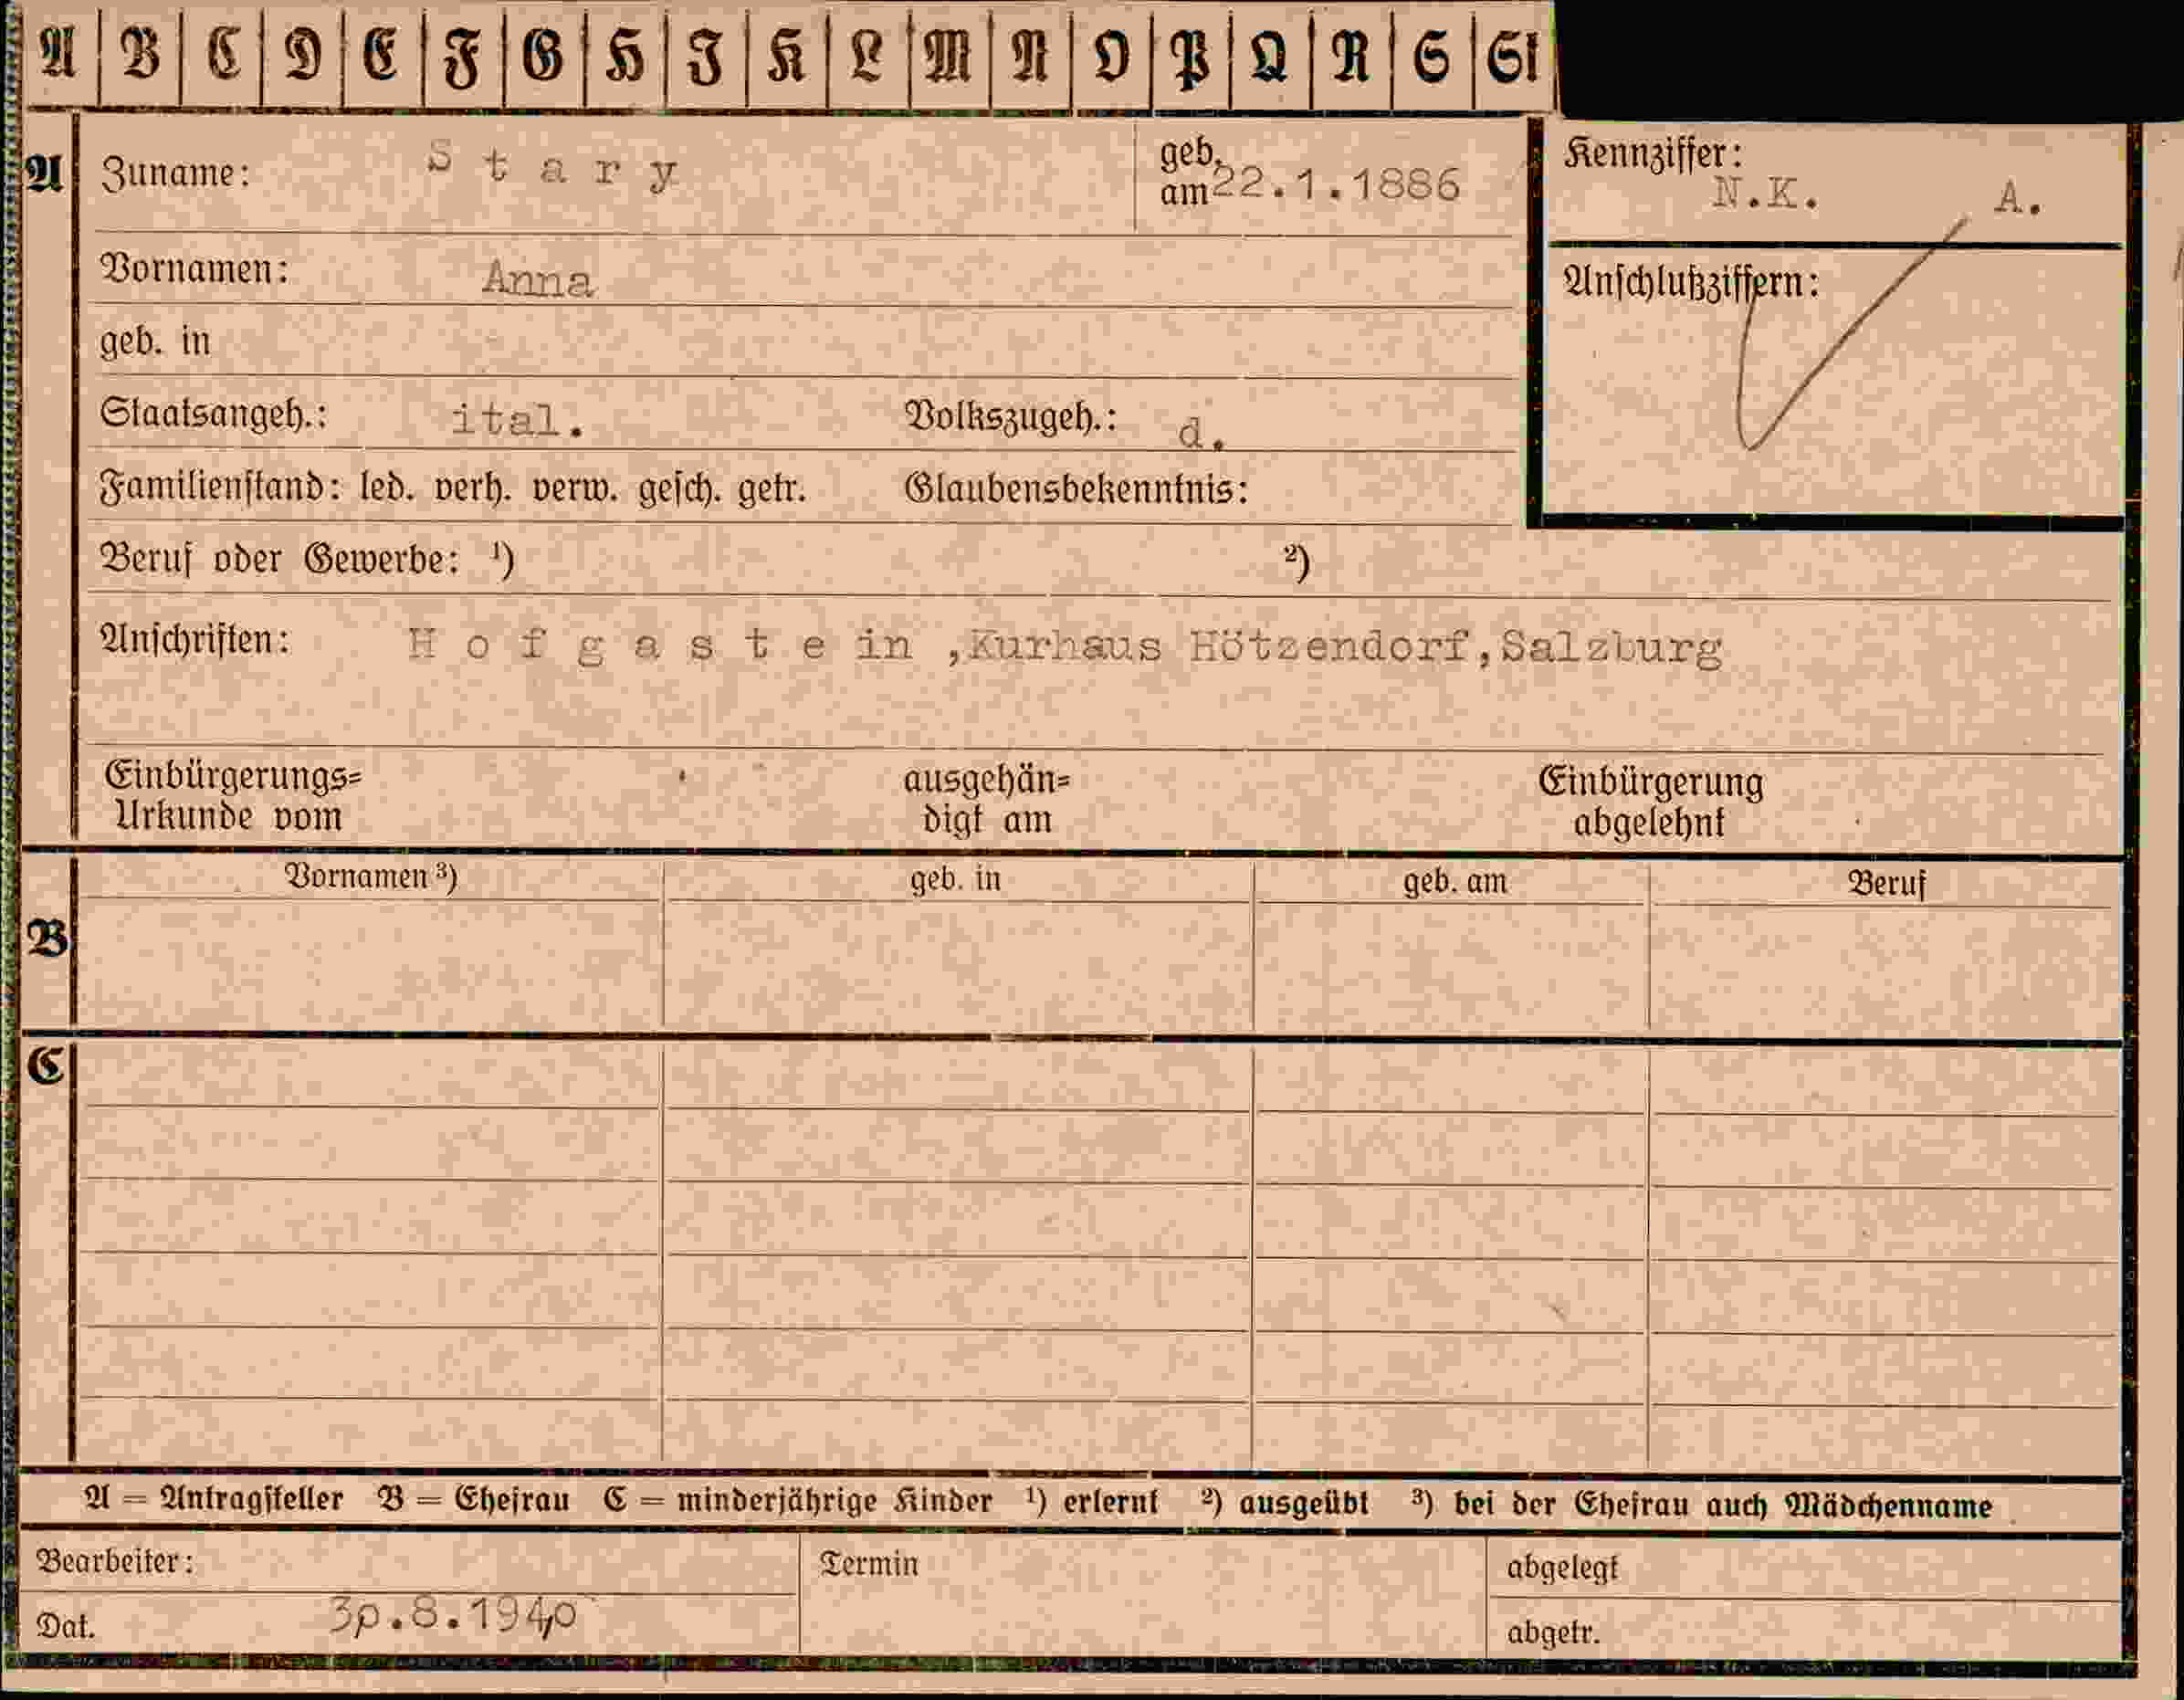 A B C D E F G H I K L M N O P Q R S St
A Zuname: Stary geb. am 22.1.1886
Kennziffer: N.K. A.
Vornamen: Anna
Anschlußziffern:
geb. in
Staatsangeh.: ital. Volkszugeh.: d.
Familienstand: led. verh. verw. gesch. getr. Glaubensbekenntnis:
Beruf oder Gewerbe: ¹) ²)
Anschriften: Hofgastein ,Kurhaus Hötzendorf,Salzburg
Einbürgerungs= ausgehän= Einbürgerung
Urkunde vom digt am abgelehnt
Vornamen ³) geb. in geb. am Beruf
B
C
A = Antragsteller B = Ehefrau C = minderjährige Kinder ¹) erlernt ²) ausgeübt ³) bei der Ehefrau auch Mädchenname
Bearbeiter: Termin abgelegt
Dat. 30.8.1940 abgetr.